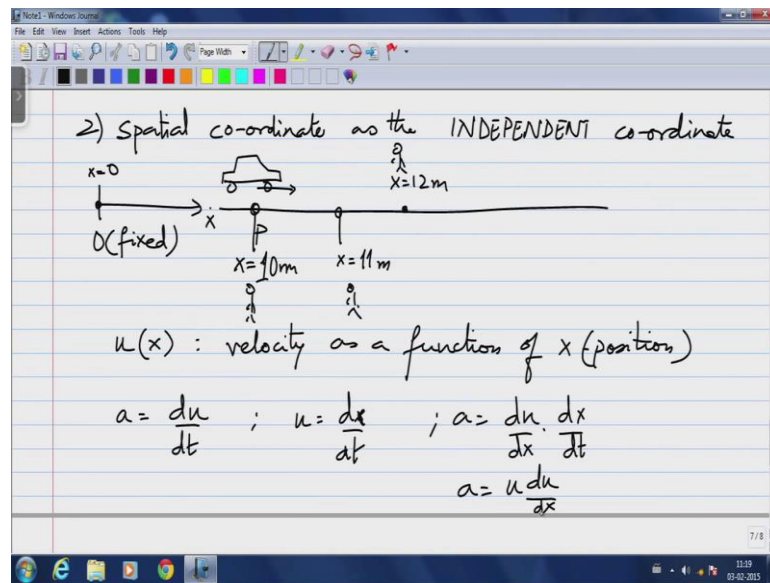 Note1 - Windows Journal
File Edit View Insert Actions Tools Help
Page Width
2) Spatial co-ordinate as the INDEPENDENT co-ordinate
x=0
x=12m
x
O(fixed)
P
x=10m x=11m
u(x) : velocity as a function of x (position)
a = du/dt ; u = dx/dt ; a = du/dx . dx/dt
a = u du/dx
7/8
11:19
03-02-2015